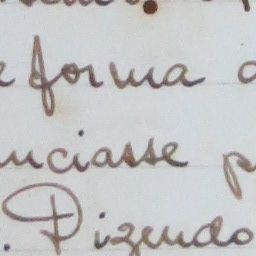 e forma a
unciasse p
. Dizendo